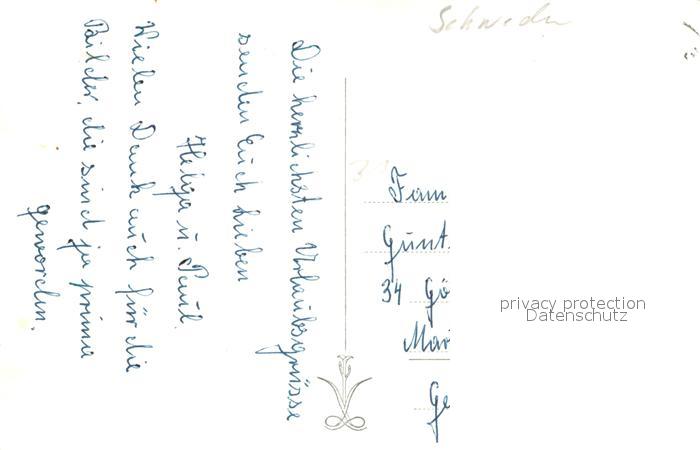 Schweden
Die herrlichsten Urlaubsgrüsse
senden Euch Lieben
Helga u. Paul.
Vielen Dank auch für die
Bilder, die sind ja prima
geworden.
31
Fam
Günt.
34 Gö
Mar
Ge
privacy protection
Datenschutz